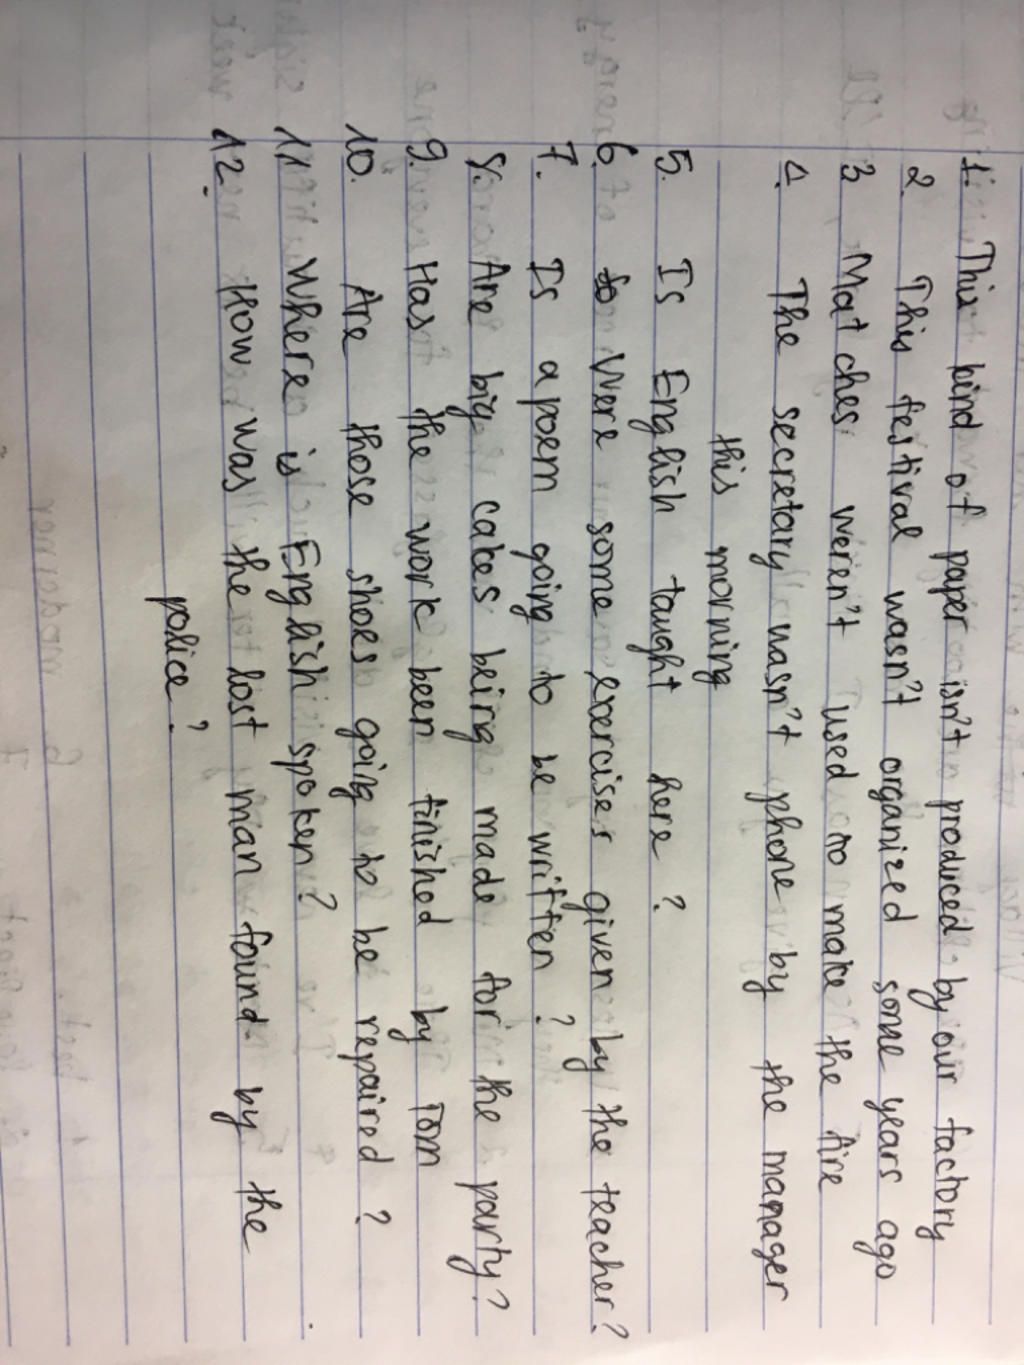 1. This kind of paper isn't produced by our factory
2. This festival wasn't organized some years ago
3 Matches weren't used to make the fire
4. The secretary wasn't phone by the manager
this morning
5. Is English taught here ?
6. Were some exercises given by the teacher?
7. Is a poem going to be written ?
8. Are big cakes being made for the party?
9. Has the work been finished by Tom
10. Are those shoes going to be repaired ?
11 Where is English spoken?
12. How was the lost man found by the
police?